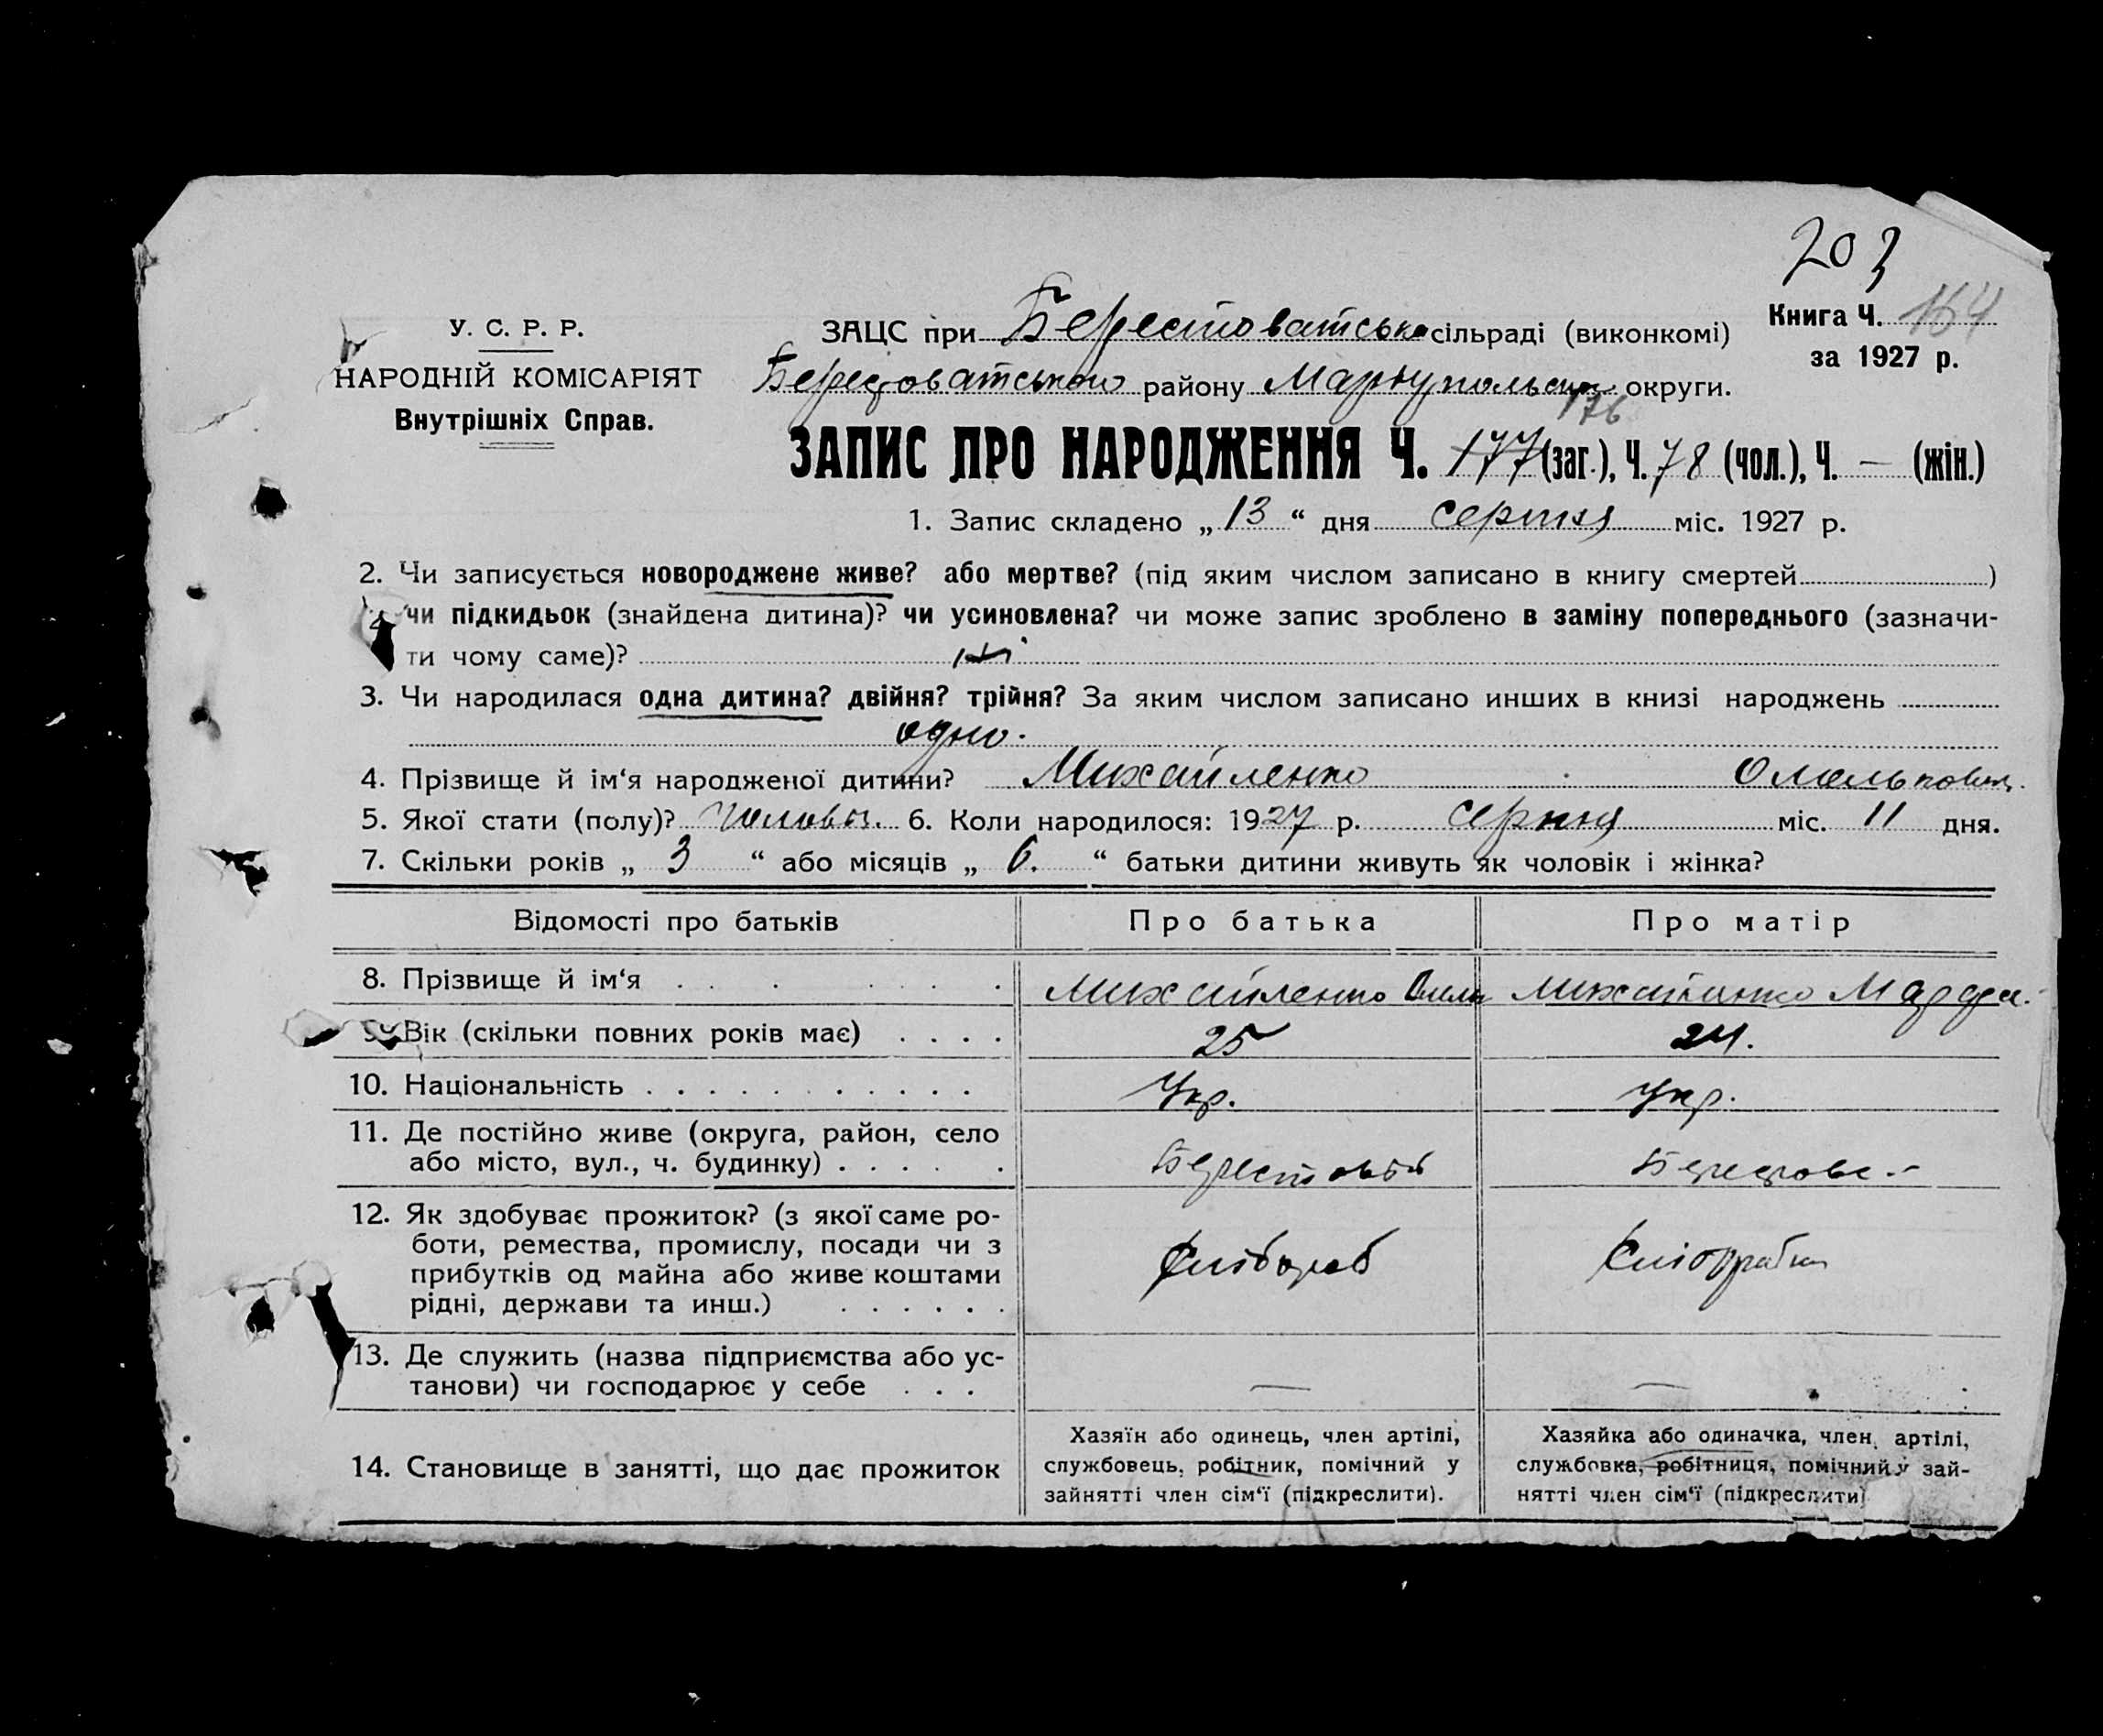 203
У. С. Р. Р.
НАРОДНІЙ КОМІСАРІЯТ
Внутрішніх Справ.
ЗАЦС при Берестоватська сільраді (виконкомі)
Берестоватського району Маріупольська округи.
Книга Ч. 164
за 1927 р.
176
ЗАПИС ПРО НАРОДЖЕННЯ Ч. 177 (заг.), Ч. 78 (чол.), Ч. — (жін.)
1. Запис складено „ 13 “ дня серпня міс. 1927 р.
2. Чи записується новороджене живе? або мертве? (під яким числом записано в книгу смертей )
чи підкидьок (знайдена дитина)? чи усиновлена? чи може запис зроблено в заміну попереднього (зазначи-
ти чому саме)? ні
3. Чи народилася одна дитина? двійня? трійня? За яким числом записано инших в книзі народжень
одно.
4. Прізвище й ім‘я народженої дитини? Михайленко
5. Якої стати (полу)? Чоловіч. 6. Коли народилося: 1927 р. серпня міс. 11 дня.
7. Скільки років „ 3 “ або місяців „ 6. “ батьки дитини живуть як чоловік і жінка?
Відомості про батьків Про батька Про матір
8. Прізвище й ім‘я Михайленко Михайленко
9. Вік (скільки повних років має) 25 24.
10. Національність Укр. Укр.
11. Де постійно живе (округа, район, село
або місто, вул., ч. будинку)
12. Як здобуває прожиток? (з якої саме ро-
боти, ремества, промислу, посади чи з
прибутків од майна або живе коштами
рідні, держави та инш.) Хлібороб
13. Де служить (назва підприємства або ус-
танови) чи господарює у себе — —
14. Становище в занятті, що дає прожиток
Хазяїн або одинець, член артілі,
службовець, робітник, помічний у
зайнятті член сім‘ї (підкреслити).
Хазяйка або одиначка, член артілі,
службовка, робітниця, помічний у зай-
нятті член сім‘ї (підкреслити)